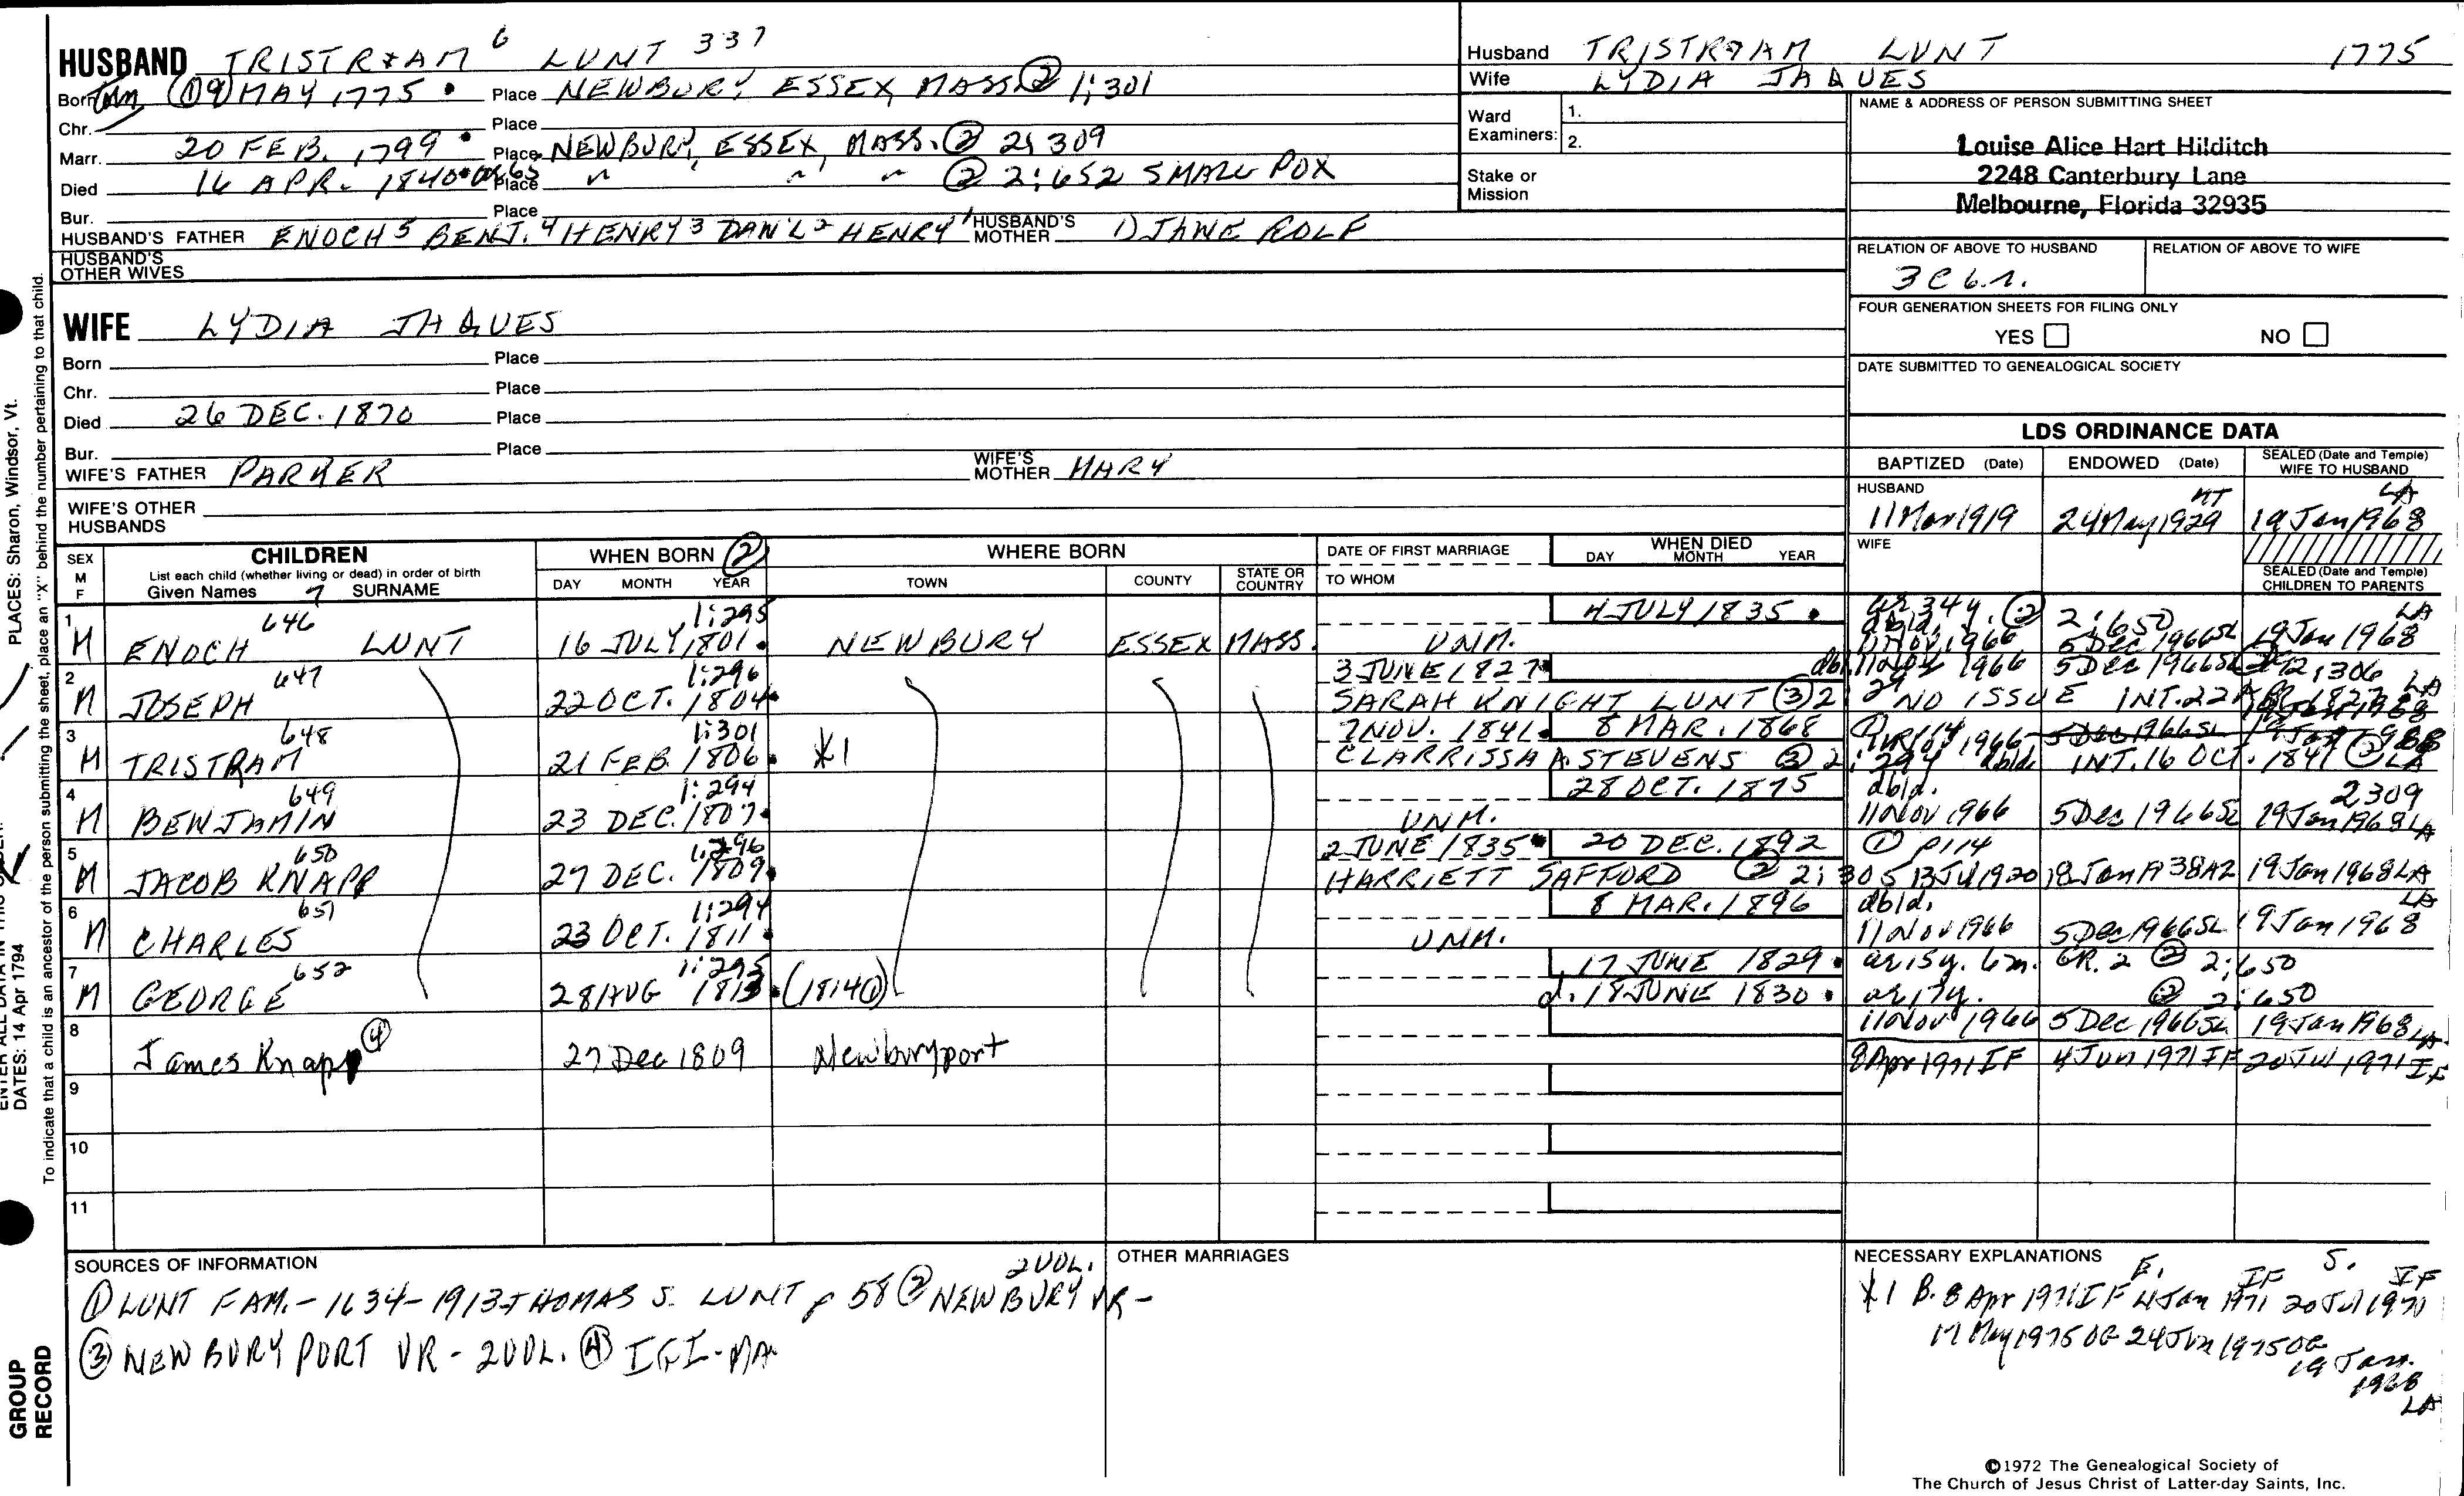 HUSBAND TRISTRAM 6 LUNT 337
Born 9 MAY 1775 Place NEWBURY ESSEX MASS ② 1:301
Chr. Place
Marr. 20 FEB. 1799 Place NEWBURY, ESSEX, MASS. ② 2: 309
Died 16 APR. 1840 Place " " " ② 2:652 SMALL POX
Bur. Place
HUSBAND'S FATHER ENOCH 5 BENJ. 4 HENRY 3 DAN'L 2 HENRY 1 HUSBAND'S MOTHER 1) JANE ROLF
HUSBAND'S OTHER WIVES
WIFE LYDIA JAQUES
Born Place
Chr. Place
Died 26 DEC. 1870 Place
Bur. Place
WIFE'S FATHER PARKER WIFE'S MOTHER MARY
WIFE'S OTHER HUSBANDS
Husband TRISTRAM LUNT 1775
Wife LYDIA JAQUES
Ward Examiners: 1.
2.
Stake or Mission
NAME & ADDRESS OF PERSON SUBMITTING SHEET
Louise Alice Hart Hilditch
2248 Canterbury Lane
Melbourne, Florida 32935
RELATION OF ABOVE TO HUSBAND RELATION OF ABOVE TO WIFE
3C 6.r.
FOUR GENERATION SHEETS FOR FILING ONLY
YES NO
DATE SUBMITTED TO GENEALOGICAL SOCIETY
LDS ORDINANCE DATA
BAPTIZED (Date) ENDOWED (Date) SEALED (Date and Temple) WIFE TO HUSBAND
HUSBAND
11 Mar 1919 24 May 1929 19 Jan 1968 LA
WIFE
SEALED (Date and Temple) CHILDREN TO PARENTS
SEX M F CHILDREN WHEN BORN ② WHERE BORN DATE OF FIRST MARRIAGE WHEN DIED
List each child (whether living or dead) in order of birth
Given Names 7 SURNAME DAY MONTH YEAR TOWN COUNTY STATE OR COUNTRY TO WHOM DAY MONTH YEAR
1 646 1:295 4 JULY 1835 ② 2:650 LA
M ENOCH LUNT 16 JULY 1801 NEWBURY ESSEX MASS. UNM. 11 Nov 1966 5 Dec 1966 SL 19 Jan 1968
2 647 1:296 3 JUNE 1827 11 Nov 1966 5 Dec 1966 SL 2:306
M JOSEPH 22 OCT. 1804 SARAH KNIGHT LUNT ③ 2: NO ISSUE INT. 22
3 648 1:301 7 NOV. 1841 8 MAR. 1868 5 Dec 1966 SL
M TRISTRAM 21 FEB. 1806 X1 CLARRISSA A. STEVENS ③ 2:294 INT. 16 OCT. 1841
4 649 1:294 28 OCT. 1875 dbld. 2309
M BENJAMIN 23 DEC. 1807 UNM. 11 Nov 1966 5 Dec 1966 SL 19 Jan 1968 LA
5 650 1:296 2 JUNE 1835 20 DEC. 1892 ① p114
M JACOB KNAPP 27 DEC. 1809 HARRIETT SAFFORD ② 2:305 13 Jul 1920 18 Jan 1938 AZ 19 Jan 1968 LA
6 651 1:294 8 MAR. 1896 dbld. LA
M CHARLES 23 OCT. 1811 UNM. 11 Nov 1966 5 Dec 1966 SL 19 Jan 1968
7 652 1:295 17 JUNE 1829 ae 15y. 6m. GR. 2 ② 2:650
M GEORGE 28 AUG 1813 (1814 ①) d. 18 JUNE 1830 ae 17y. ② 2:650
11 Nov 1966 5 Dec 1966 SL 19 Jan 1968 LA
8 James Knapp ④ 27 Dec 1809 Newburyport 8 Apr 1971 IF 4 Jun 1971 IF 20 Jul 1971 IF
9
10
11
SOURCES OF INFORMATION
① LUNT FAM. - 1634-1913 THOMAS S. LUNT p 58 ② NEWBURY VR - 2 VOL.
③ NEWBURYPORT VR - 2 VOL. ④ IGI-MA
OTHER MARRIAGES
NECESSARY EXPLANATIONS
E. S.
X1 B. 8 Apr 1971 IF 4 Jan 1971 IF 20 Jul 1971 IF
17 May 1975 OG 24 Jun 1975 OG
19 Jan. 1968 LA
©1972 The Genealogical Society of
The Church of Jesus Christ of Latter-day Saints, Inc.
PLACES: Sharon, Windsor, Vt.
DATES: 14 Apr 1794
To indicate that a child is an ancestor of the person submitting the sheet, place an "X" behind the number pertaining to that child.
GROUP RECORD